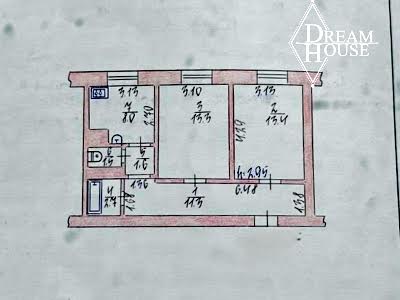 DREAM
HOUSE
3.13
3.10
3.13
7
8.0
2.70
3
13.3
2
13.4
4.29
6
1.5
5
1.6
h=2.95
1.36
6.48
4
2.7
1.68
1
11.3
1.38